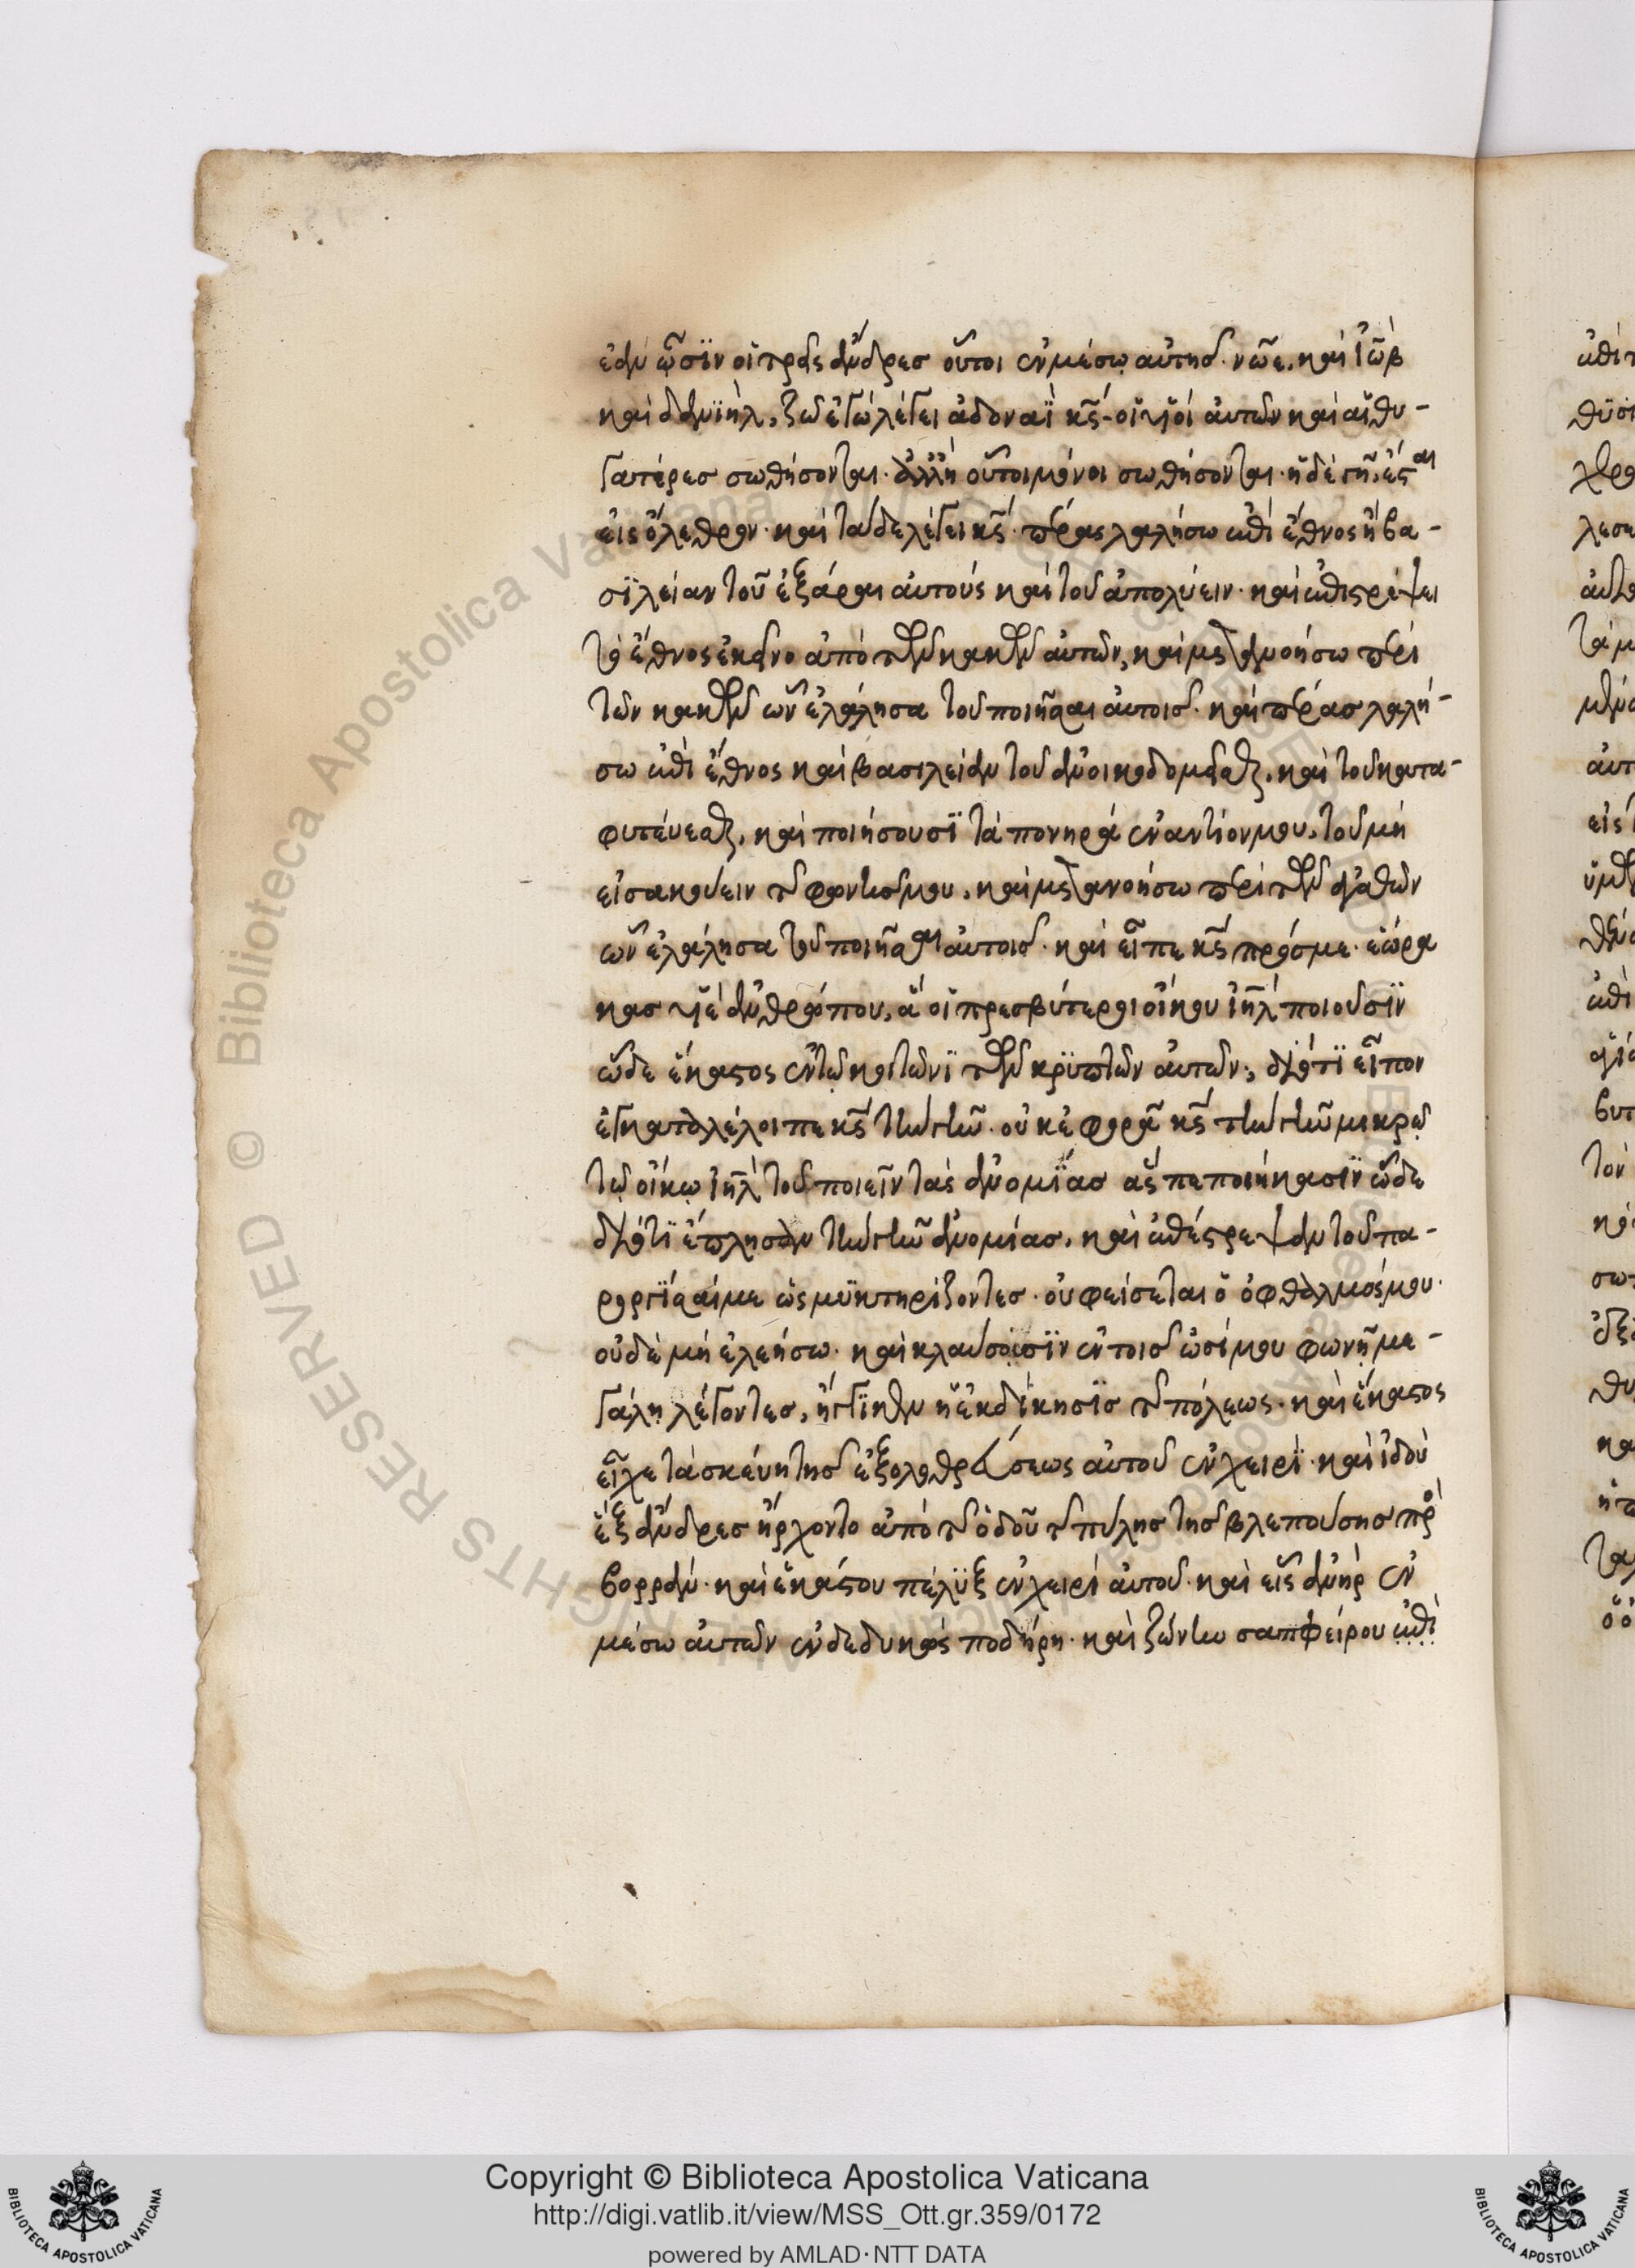 ἐὰν ὦσϊν οἱ τρεῖς ἄνδρες οὗτοι ἐν μέσω αὐτῆς· νῶε, καὶ ἰὼβ
καὶ δανϊὴλ, ζῶ ἐγὼ λέγει ἀδοναῒ κς· οἱ υἱοὶ αὐτῶν καὶ αἱ θυ-
γατέρες σωθήσονται· ἀλλ' ἢ οὗτοι μόνοι σωθήσονται· ἡ δὲ γῆ ἔσται
εἰς ὄλεθρον· καὶ τάδε λέγει κς· πέρας λαλήσω ἐπὶ ἔθνος ἢ βα-
σϊλείαν τοῦ ἐξάραι αὐτοὺς καὶ τοῦ ἀπολύειν· καὶ ἐπιστρέψει
τὸ ἔθνος ἐκεῖνο ἀπὸ τῶν κακῶν αὐτῶν, καὶ μετανοήσω περὶ
τῶν κακῶν ὧν ἐλάλησα τοῦ ποιῆσαι αὐτοῖς· καὶ πέρας λαλή-
σω ἐπὶ ἔθνος καὶ βασιλείαν τοῦ ἀνοικοδομεῖσθαι, καὶ τοῦ κατα-
φυτεύεσθαι, καὶ ποιήσουσϊ τὰ πονηρὰ ἐναντίον μου, τοῦ μὴ
εἰσακούειν τῆς φωνῆς μου, καὶ μετανοήσω περὶ τῶν ἀγαθῶν
ὧν ἐλάλησα τοῦ ποιῆσαι αὐτοῖς· καὶ εἶπε κς πρός με· ἑώρα
κας υἱὲ ἀνθρώπου, ἃ οἱ πρεσβύτεροι οἴκου ιηλ ποιοῦσϊν
ὧδε ἕκαστος ἐν τῶ κοιτῶνϊ τῶν κρϋπτῶν αὐτῶν, διότϊ εἶπον
ἐγκαταλέλοιπε κς τὴν γῆν· οὐκ ἐφορᾶ κς τὴν γῆν μικρὸν
τῶ οἴκω ιηλ τοῦ ποιεῖν τὰς ἀνομϊας ἃς πεποιήκασϊν ὧδε
διότϊ ἔπλησαν τὴν γῆν ἀνομίας, καὶ ἐπέστρεψαν τοῦ πα-
ροργϊσαί με ὡς μϋκτηρίζοντες· οὐ φείσεται ὁ ὀφθαλμός μου·
οὐδὲ μὴ ἐλεήσω· καὶ κλαύσουσϊν ἐν τοῖς ὠσί μου φωνῇ με-
γάλῃ λέγοντες, ἤγγϊκεν ἡ ἐκδϊκησϊς τῆς πόλεως· καὶ ἕκαστος
εἶχε τὰ σκεύη τῆς ἐξολοθρεύσεως αὐτοῦ ἐν χειρϊ· καὶ ἰδοὺ
ἓξ ἄνδρες ἤρχοντο ἀπὸ τῆς ὁδοῦ τῆς πύλης τῆς βλεπούσης πρὸς
βορρᾶν· καὶ ἑκάστου πέλϋξ ἐν χειρὶ αὐτοῦ· καὶ εἷς ἀνὴρ ἐν
μέσω αὐτῶν ἐνδεδυκὼς ποδήρη· καὶ ζώνην σαπφείρου ἐπὶ
Copyright © Biblioteca Apostolica Vaticana
http://digi.vatlib.it/view/MSS_Ott.gr.359/0172
powered by AMLAD·NTT DATA